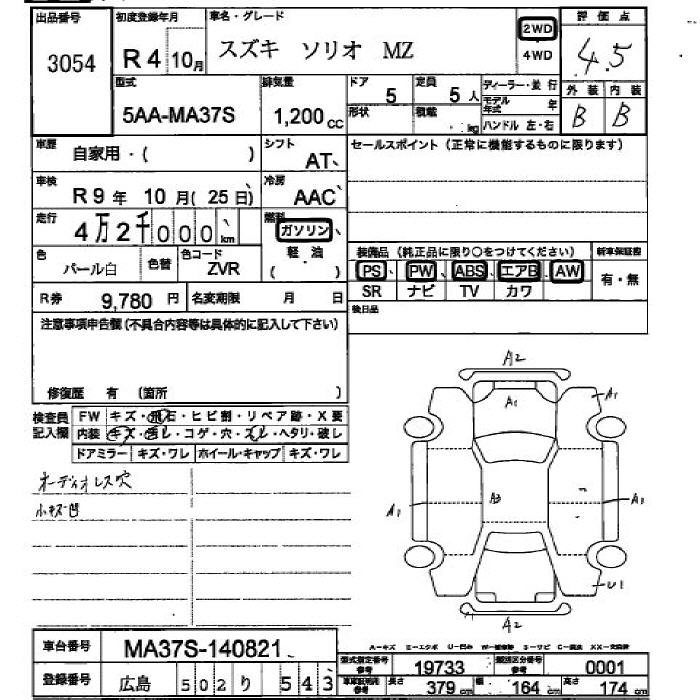 出品番号
3054
初度登録年月
R4 10月
車名・グレード
スズキ ソリオ MZ
2WD
4WD
評価点
4.5
型式
5AA-MA37S
排気量
1,200 cc
ドア
5
定員
5 人
形状
積載
kg
ディーラー・並行
モデル年式 年
ハンドル 左・右
外装
B
内装
B
車歴
自家用・( )
シフト
AT
セールスポイント(正常に機能するものに限ります)
車検
R9年 10月(25日)
冷房
AAC
走行
4万2千000km
燃料
ガソリン
軽・油
( )
色
パール白
色替
色コード
ZVR
装備品 (純正品に限り○をつけてください)
新車保証書
PS PW ABS エアB AW
SR ナビ TV カワ
有・無
R券 9,780 円
名変期限 月 日
後日品
注意事項申告欄(不具合内容等は具体的に記入して下さい)
修復歴 有 (箇所 )
検査員記入欄
FW キズ・飛石・ヒビ割・リペア跡・X要
内装 キズ・汚レ・コゲ・穴・スレ・ヘタリ・破レ
ドアミラー キズ・ワレ ホイール・キャップ キズ・ワレ
オーディオレス穴
小キズ凹
A2
A1
A1
A1
A3
A3
U1
A2
A-キズ E-エクボ U-凹み W-補修跡 S-サビ C-腐食 XX-交換済
車台番号
MA37S-140821
登録番号
広島 502 り 543
型式指定番号 参考
19733
類別区分番号 参考
0001
車車証明用 参考
長さ 379 cm
幅 164 cm
高さ 174 cm